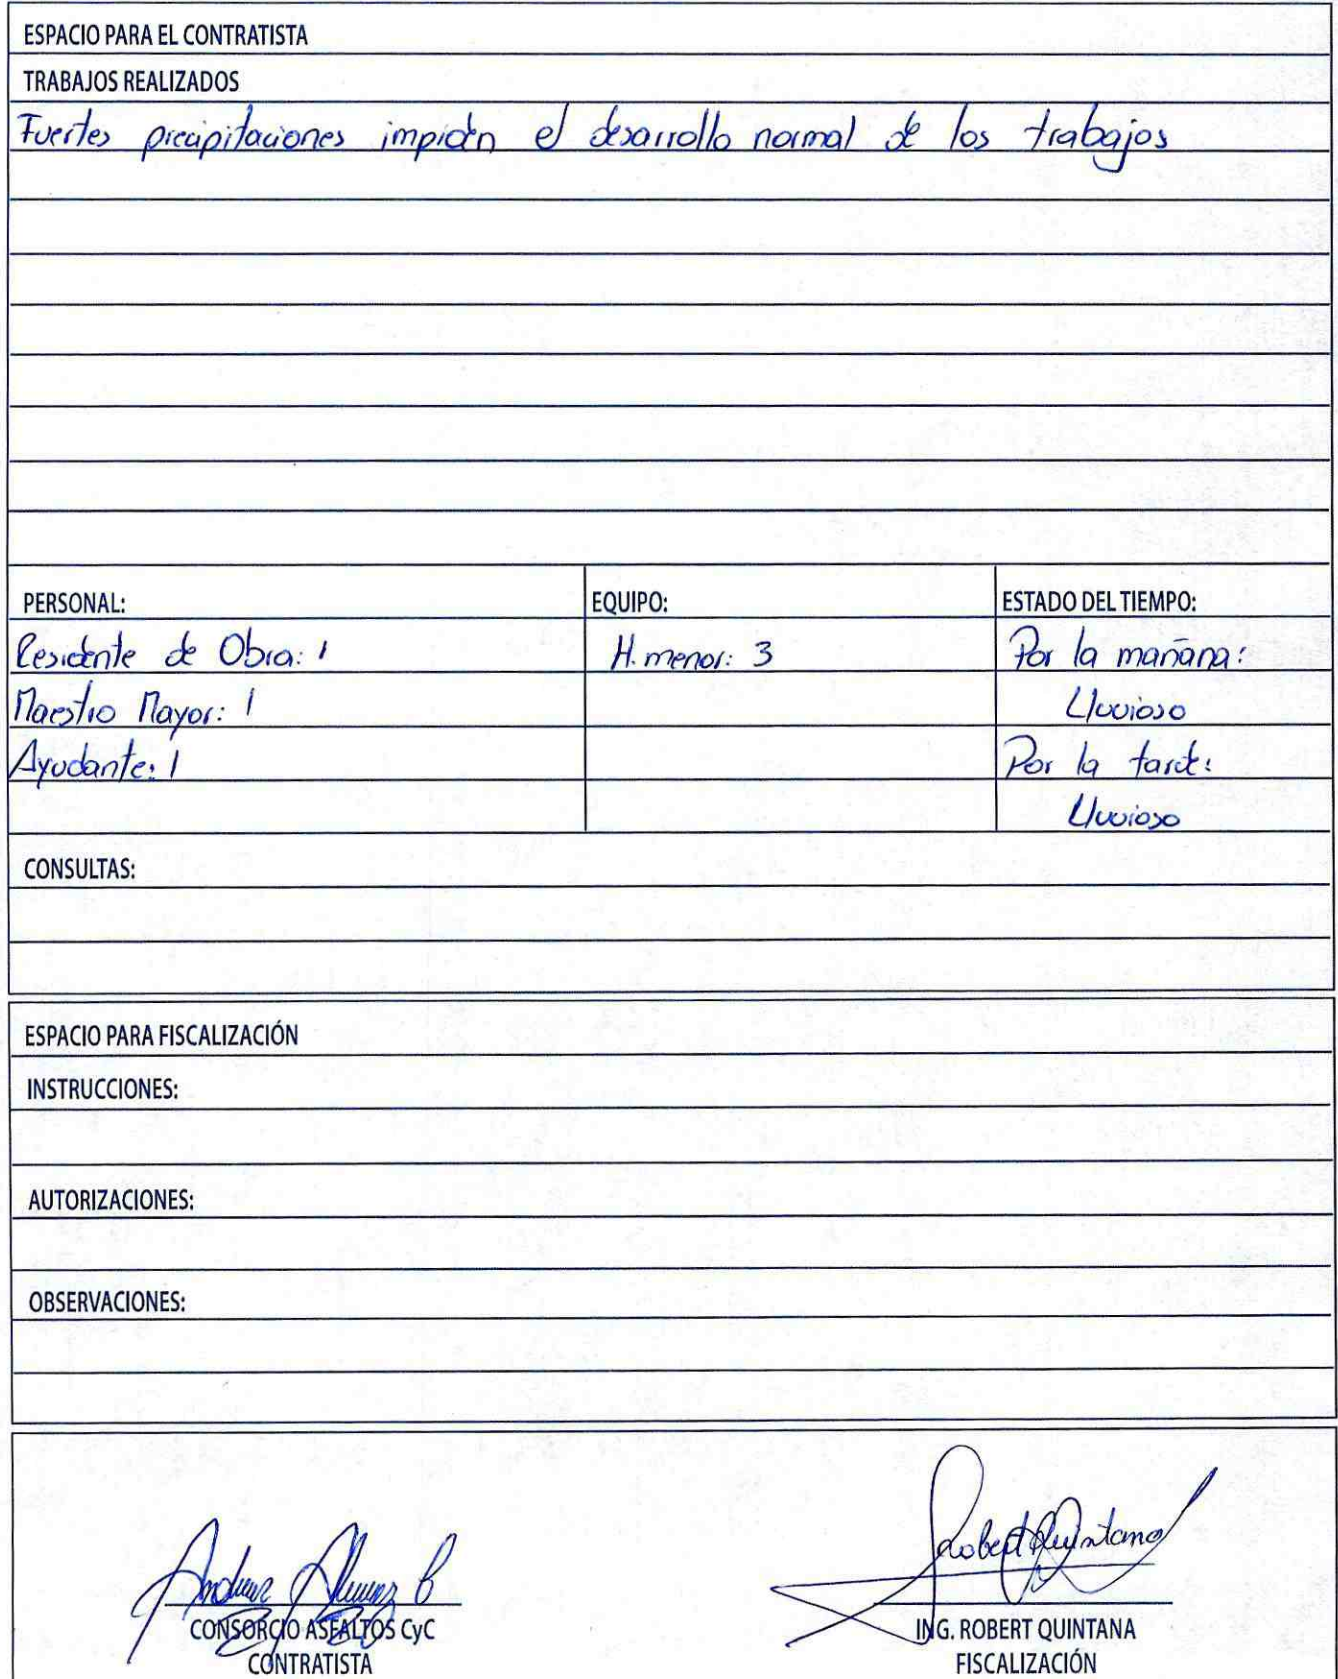 ESPACIO PARA EL CONTRATISTA
TRABAJOS REALIZADOS
Fuertes precipitaciones impiden el desarrollo normal de los trabajos
PERSONAL:
Residente de Obra: 1
Maestro Mayor: 1
Ayudante: 1
EQUIPO:
H. menor: 3
ESTADO DEL TIEMPO:
Por la mañana:
Lluvioso
Por la tarde:
Lluvioso
CONSULTAS:
ESPACIO PARA FISCALIZACIÓN
INSTRUCCIONES:
AUTORIZACIONES:
OBSERVACIONES:
CONSORCIO ASFALTOS CyC
CONTRATISTA
Robert Quintana
ING. ROBERT QUINTANA
FISCALIZACIÓN